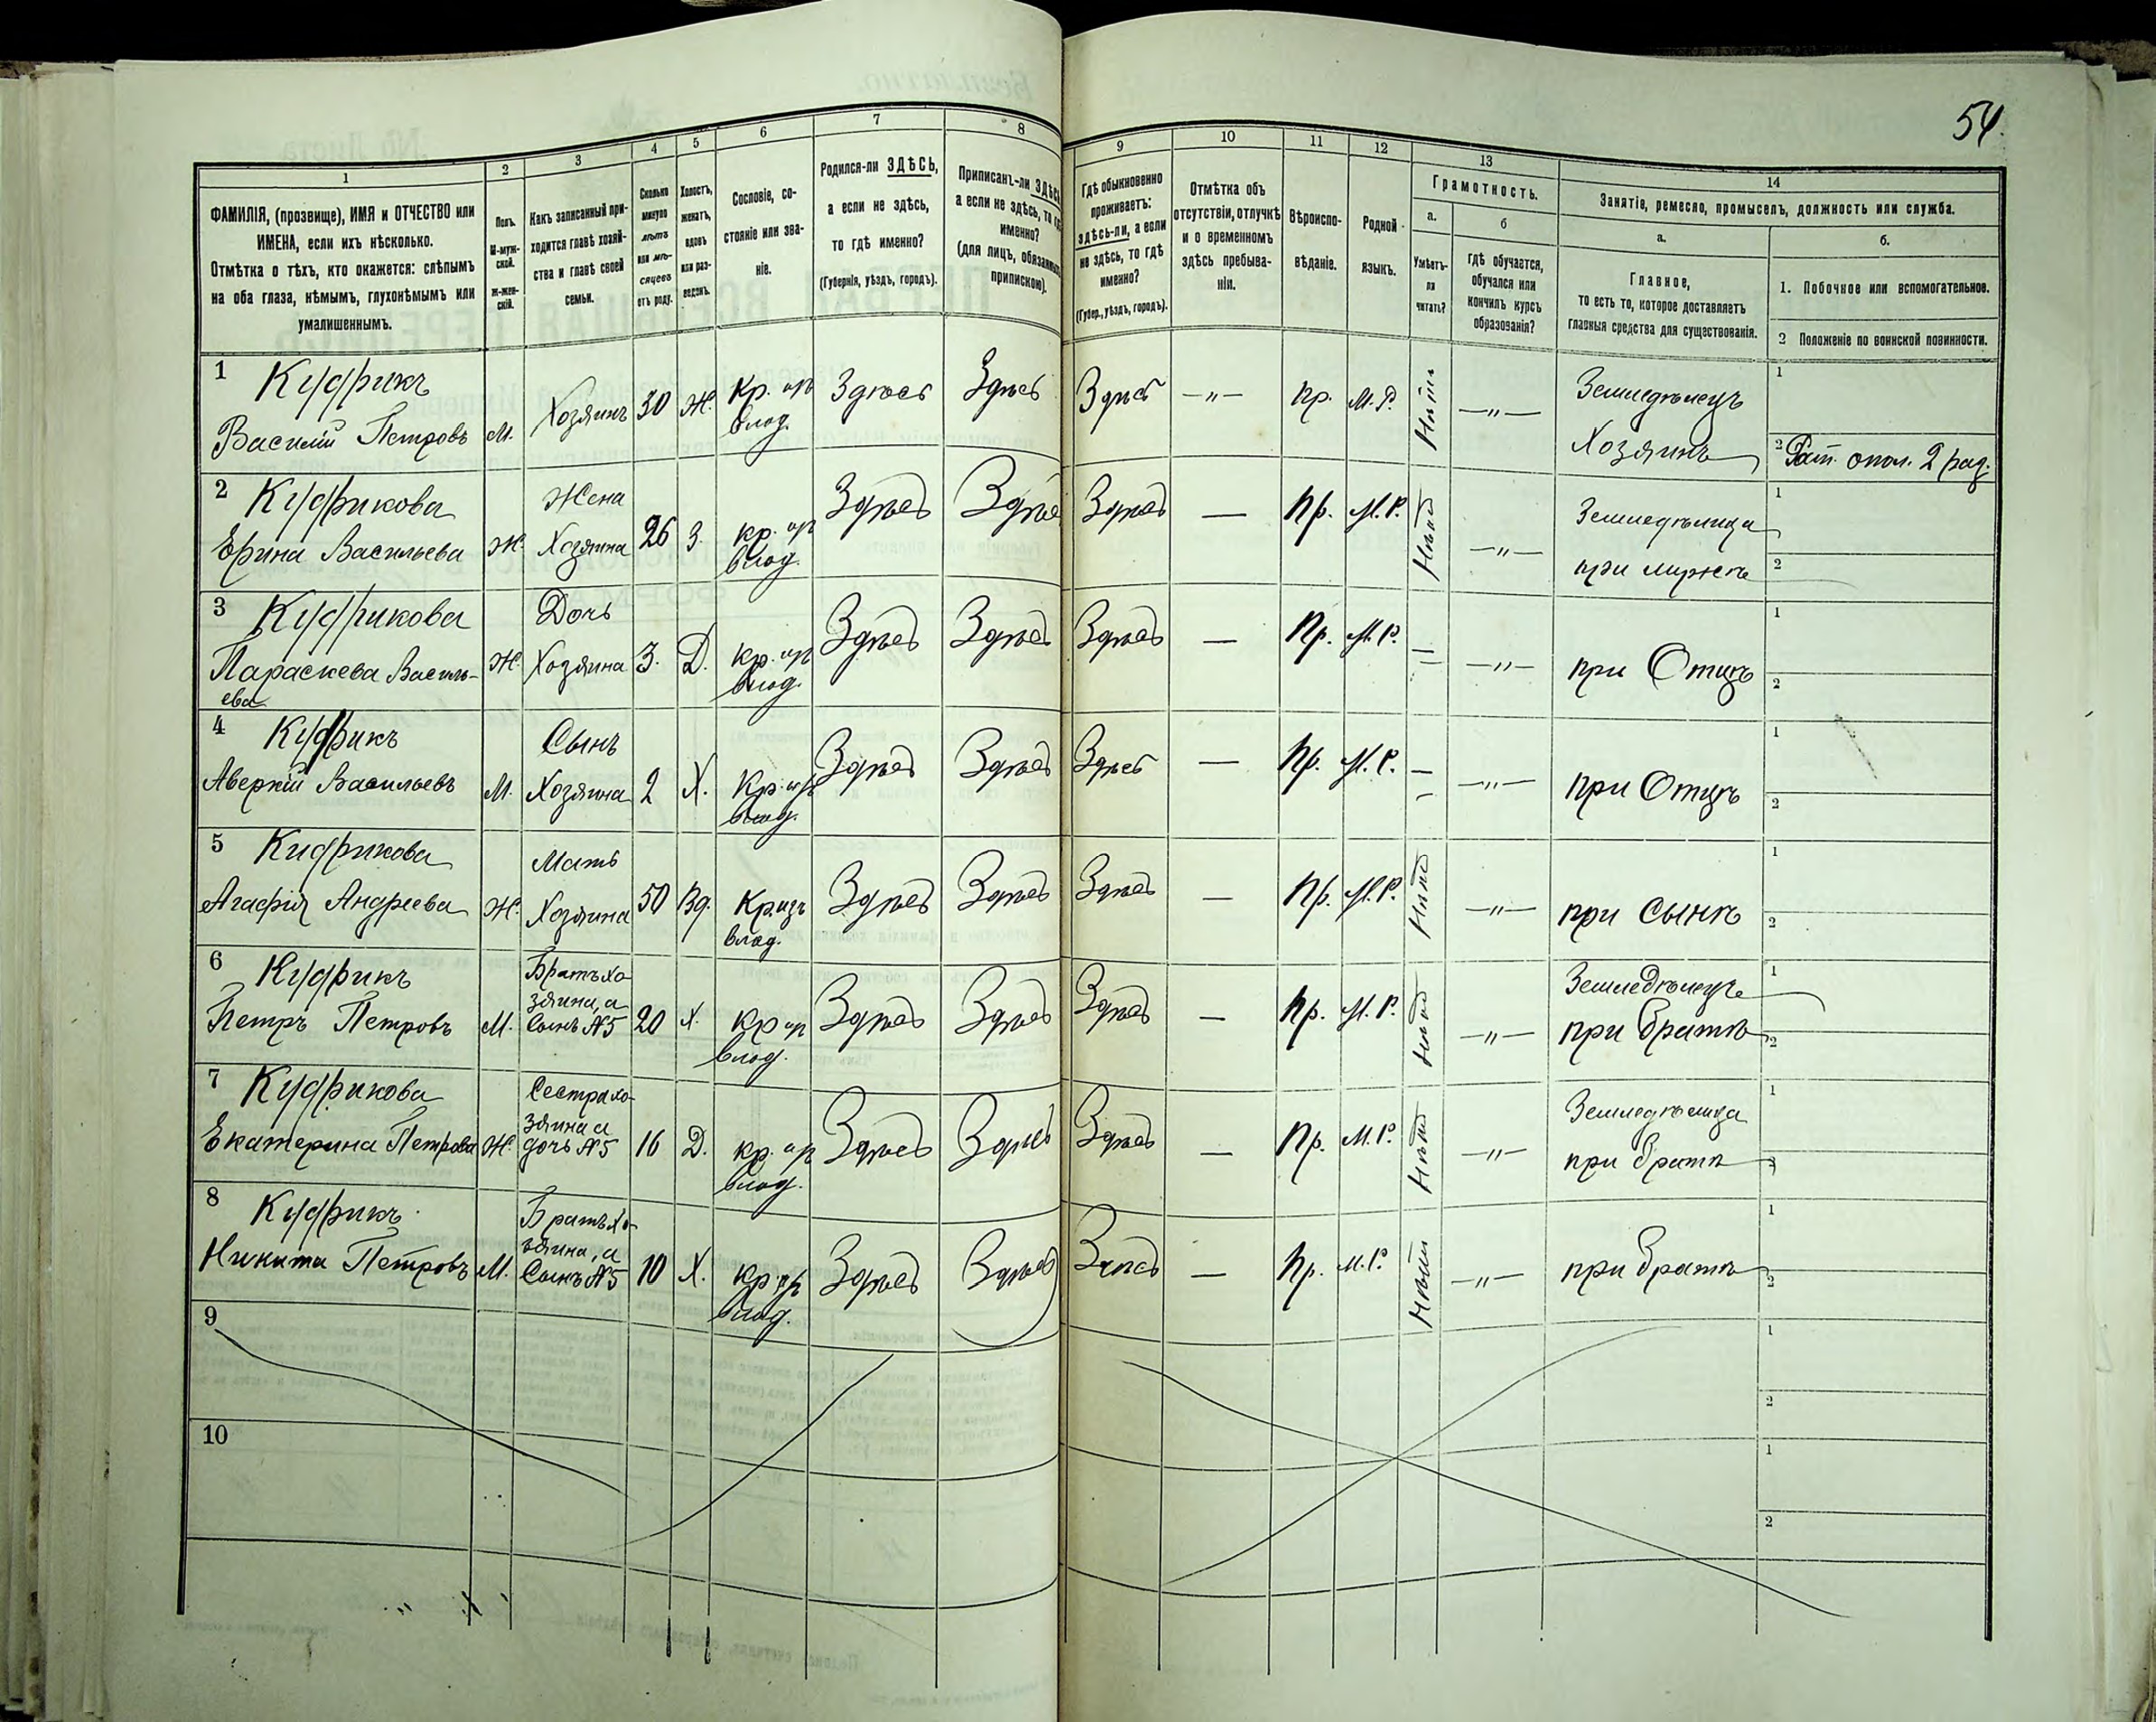 54.
1
2
3
4
5
6
7
8
9
10
11
12
13
14
ФАМИЛІЯ, (прозвище), ИМЯ и ОТЧЕСТВО или
ИМЕНА, если ихъ нѣсколько.
Отмѣтка о тѣхъ, кто окажется: слѣпымъ
на оба глаза, нѣмымъ, глухонѣмымъ или
умалишеннымъ.
Полъ.
М-муж-
ской.
Ж-жен-
скій.
Какъ записанный при-
ходится главѣ хозяй-
ства и главѣ своей
семьи.
Сколько
минуло
лѣтъ
или мѣ-
сяцевъ
отъ роду.
Холостъ,
женатъ,
вдовъ
или раз-
веденъ.
Сословіе, со-
стояніе или зва-
ніе.
Родился-ли ЗДѢСЬ,
а если не здѣсь,
то гдѣ именно?
(Губернія, уѣздъ, городъ).
Приписанъ-ли ЗДѢСЬ,
а если не здѣсь, то гдѣ
именно?
(для лицъ, обязанныхъ
припискою).
Гдѣ обыкновенно
проживаетъ:
здѣсь-ли, а если
не здѣсь, то гдѣ
именно?
(Губер., уѣздъ, городъ).
Отмѣтка объ
отсутствіи, отлучкѣ
и о временномъ
здѣсь пребыва-
ніи.
Вѣроиспо-
вѣданіе.
Родной
языкъ.
Грамотность.
а.
б
Умѣетъ-
ли
читать?
Гдѣ обучается,
обучался или
кончилъ курсъ
образованія?
Занятіе, ремесло, промыселъ, должность или служба.
а.
б.
Главное,
то есть то, которое доставляетъ
главныя средства для существованія.
1. Побочное или вспомогательное.
2 Положеніе по воинской повинности.
1 Кудрикъ
Василій Петровъ М. Хозяинъ 30 Ж. Кр. изъ
влад. Здѣсь Здѣсь Здѣсь —„— Пр. М.Р. Нѣтъ —„— Земледѣлецъ
Хозяинъ
1
2 Рат. опол. 2 раз.
2 Кудрикова
Ерина Васильева Ж. Жена
Хозяина 26 З. кр. из
влад. Здѣсь Здѣсь Здѣсь — Пр. М.Р. Нѣтъ —„— Земледѣлица
при мужѣ
1
2
3 Кудрикова
Параскева Василь-
ева Ж. Дочь
Хозяина 3. Д. кр. из
влад. Здѣсь Здѣсь Здѣсь — Пр. М.Р. — —„— при Отцѣ
1
2
4 Кудрикъ
Аверкій Васильевъ М. Сынъ
Хозяина 2 Х. Кр. изъ
влад. Здѣсь Здѣсь Здѣсь — Пр. М.Р. — —„— при Отцѣ
1
2
5 Кидрикова
Агафія Андреева Ж. Мать
Хозяина 50 Вд. Кр. изъ
влад. Здѣсь Здѣсь Здѣсь — Пр. М.Р. Нѣтъ —„— при Сынѣ
1
2
6 Кудрикъ
Петръ Петровъ М. Братъ хо-
зяина, а
Сынъ №5 20 Х. кр из
влад. Здѣсь Здѣсь Здѣсь — Пр. М.Р. Нѣтъ —„— Земледѣлецъ
при братѣ
1
2
7 Кудрикова
Екатерина Петрова Ж. Сестра хо-
зяина а
дочь №5 16 Д. кр. из
влад. Здѣсь Здѣсь Здѣсь — Пр. М.Р. Нѣтъ —„— Земледѣлица
при братѣ
1
2
8 Кудрикъ
Никита Петровъ М. Братъ хо-
зяина, а
Сынъ №5 10 Х. кр изъ
влад. Здѣсь Здѣсь Здѣсь — Пр. М.Р. Нѣтъ —„— при братѣ
1
2
9
1
2
10
1
2